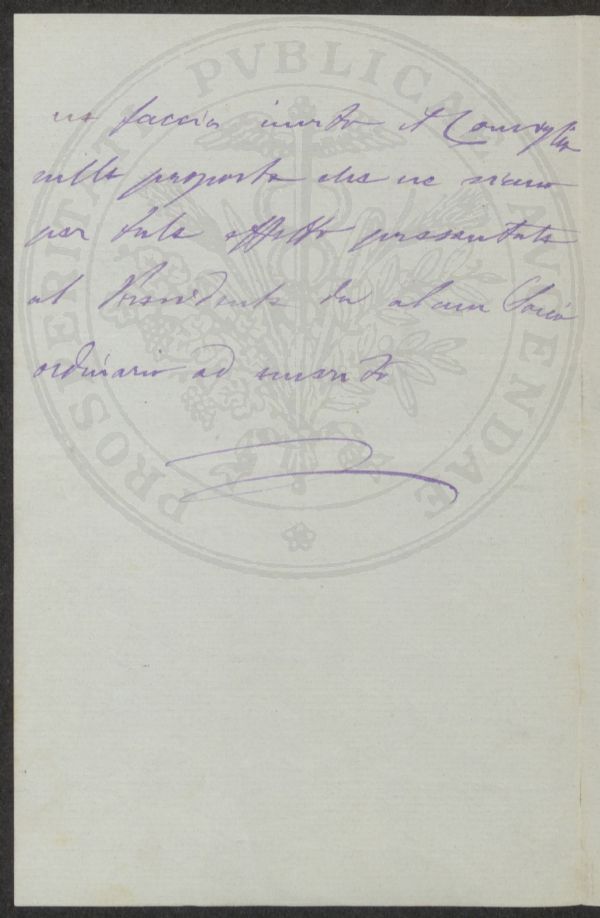 PROSPERITATI PVBLICAE AVGENDAE
ne faccia invito il Consiglio
sulla proposta che ne siano
per tale effetto presentate
al Presidente da alcun Socio
ordinario ad